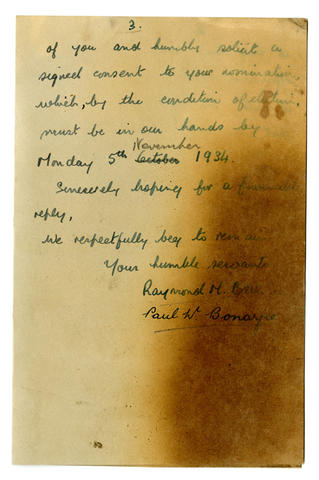 3.
of you and humbly solicit a
signed consent to your nomination,
which, by the condition of election,
must be in our hands by
November
Monday 5th October 1934.
Sincerely hoping for a favourable
reply,
We respectfully beg to remain
Your humble servants
Raymond M.
Paul W. Bonar